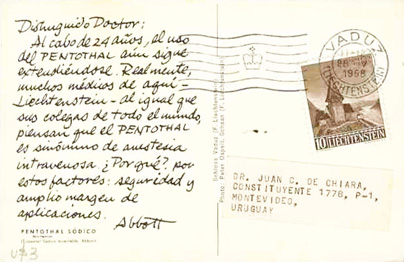 Distinguido Doctor:
Al cabo de 24 años, el uso
del PENTOTHAL aún sigue
extendiéndose. Realmente,
muchos médicos de aquí -
Liechtenstein - al igual que
sus colegas de todo el mundo,
piensan que el PENTOTHAL
es sinónimo de anestesia
intravenosa ¿Por qué? por
estos factores: seguridad y
amplio margen de
aplicaciones.
Abbott
PENTOTHAL SÓDICO
VADUZ
1958
LIECHTENSTEIN
10 LIECHTENSTEIN
DR. JUAN C. DE CHIARA,
CONSTITUYENTE 1776, P-1,
MONTEVIDEO,
URUGUAY